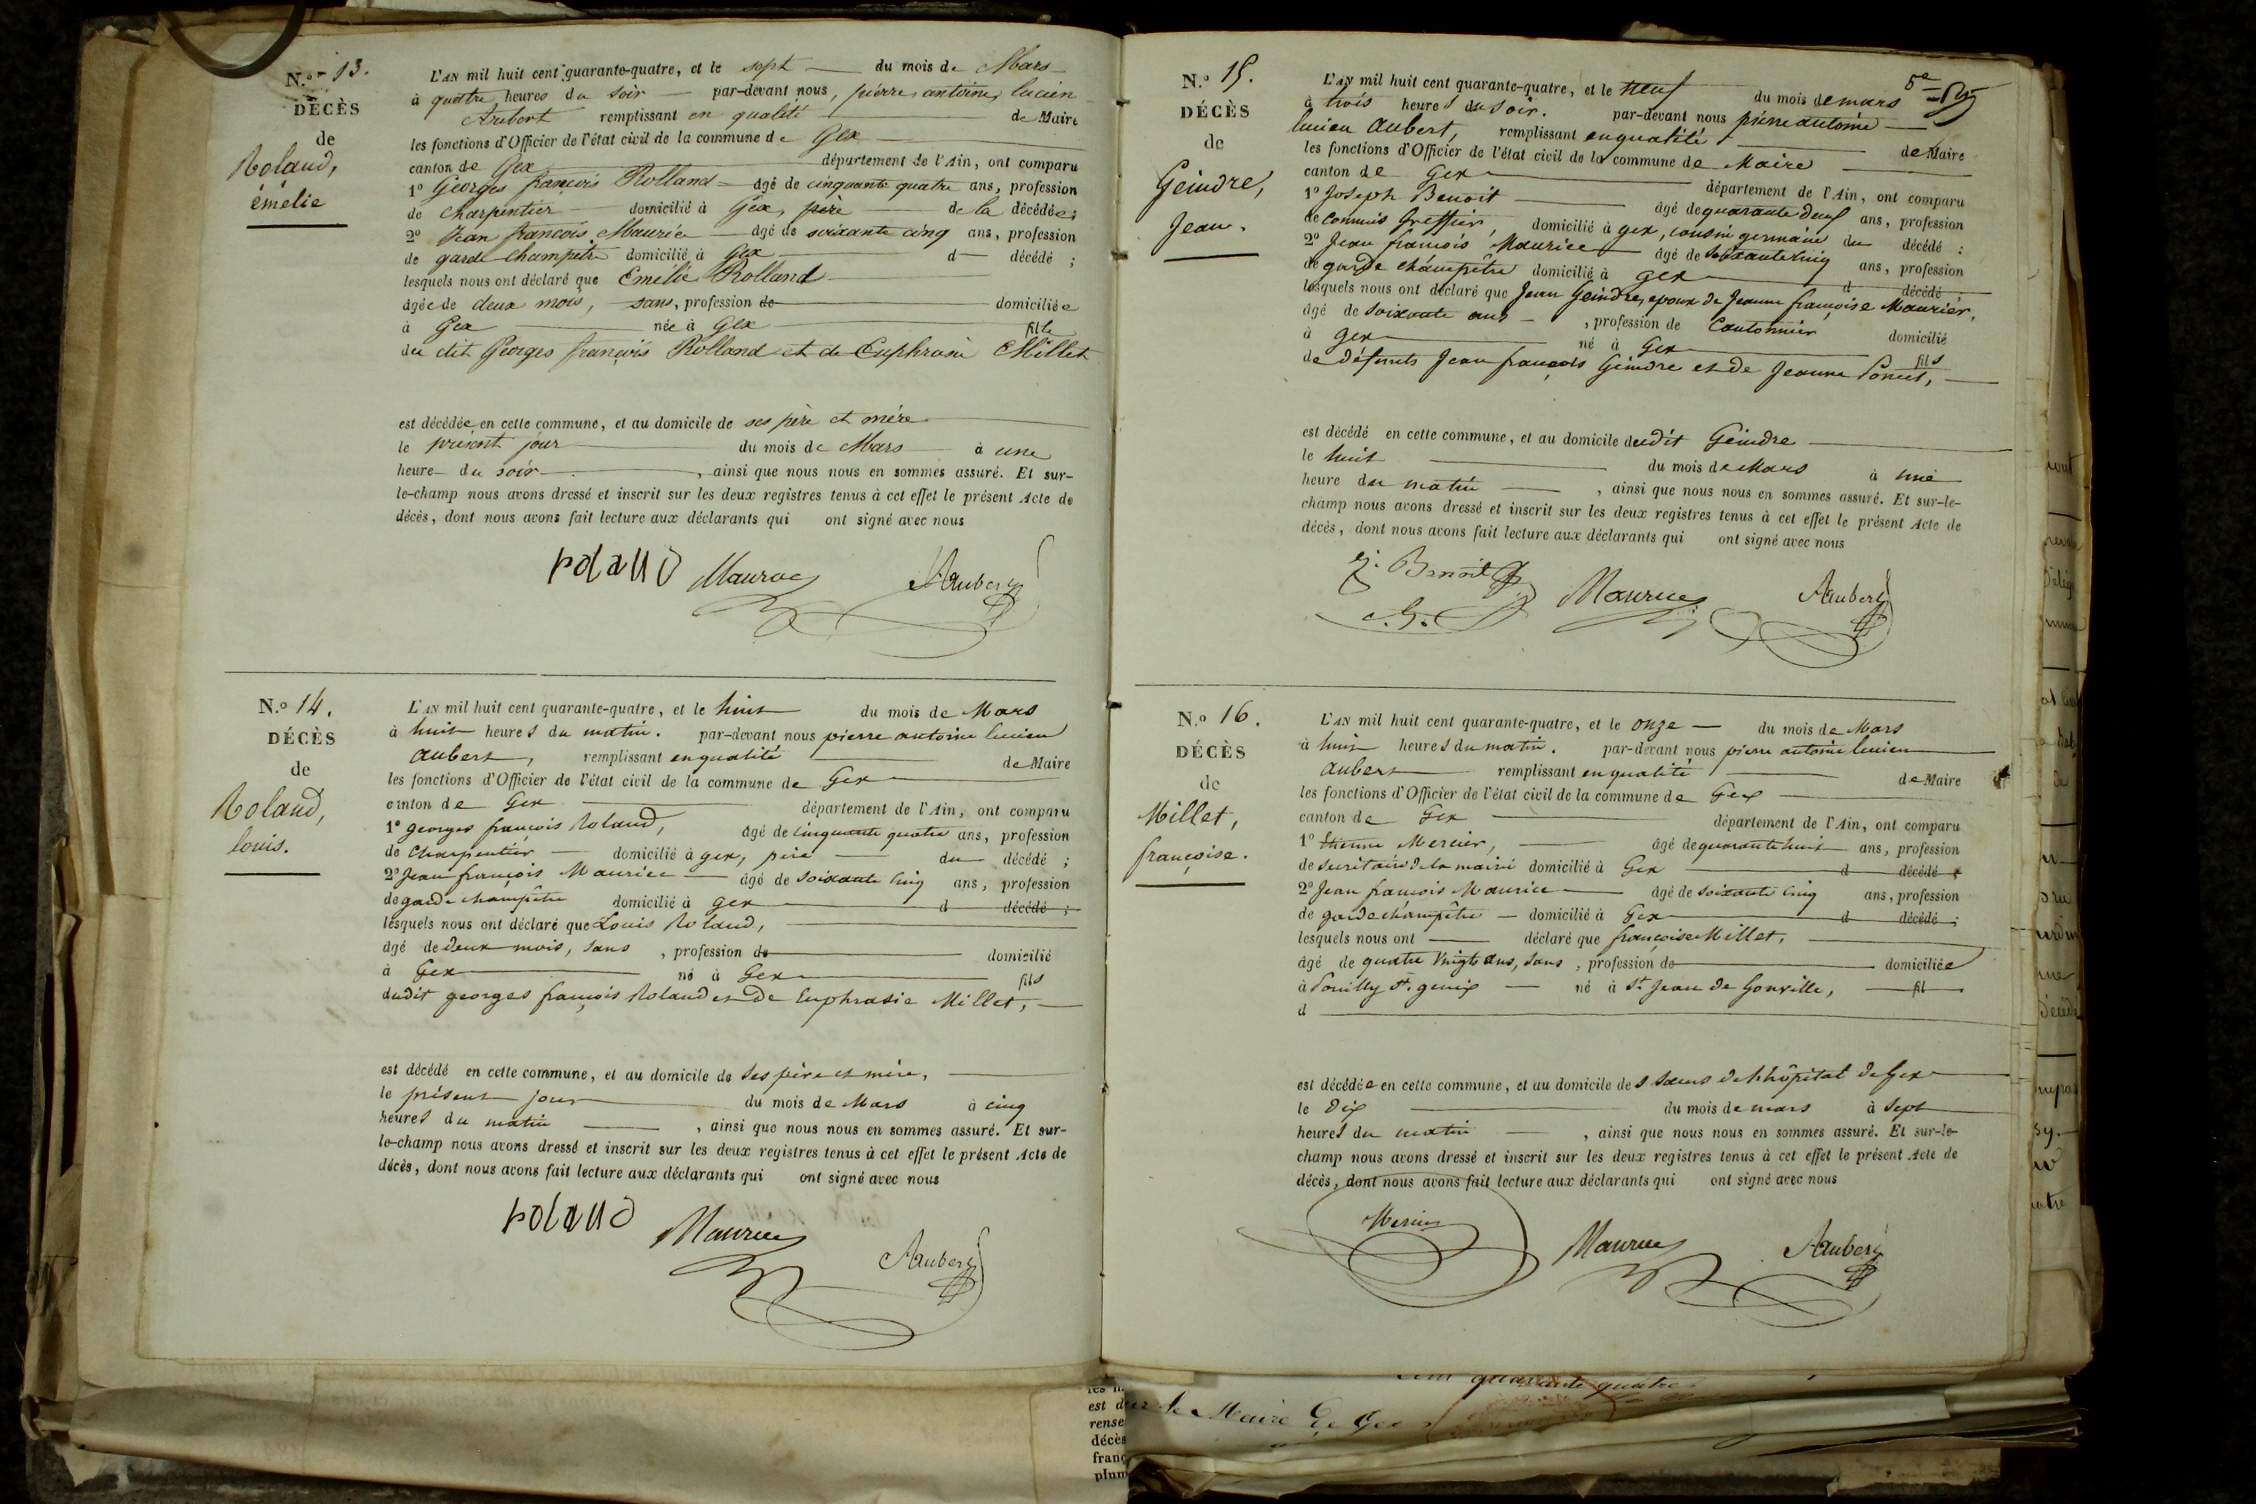 N.° 13.
DÉCÈS
de
Roland,
émélie
L'AN mil huit cent quarante-quatre, et le sept du mois de Mars
à quatre heures du soir par-devant nous, pierre antoine lucien
Aubert remplissant en qualité de Maire
les fonctions d'Officier de l'état civil de la commune de Gex
canton de Gex département de l'Ain, ont comparu
1° Georges françois Rolland âgé de cinquante quatre ans, profession
de charpentier domicilié à Gex, père de la décédée;
2° Jean françois Maurice âgé de soixante cinq ans, profession
de garde champêtre domicilié à Gex d décédé ;
lesquels nous ont déclaré que Emélie Rolland
âgée de deux mois, sans, profession de domiciliée
à Gex née à Gex fille
du dit Georges françois Rolland et de Euphrasie Millet
est décédée en cette commune, et au domicile de ses père et mère
le présent jour du mois de Mars à une
heure du soir , ainsi que nous nous en sommes assuré. Et sur-
le-champ nous avons dressé et inscrit sur les deux registres tenus à cet effet le présent Acte de
décès, dont nous avons fait lecture aux déclarants qui ont signé avec nous
roland Maurice Aubert
N.° 14.
DÉCÈS
de
Roland,
louis.
L'AN mil huit cent quarante-quatre, et le huit du mois de Mars
à huit heures du matin. par-devant nous pierre antoine lucien
aubert, remplissant en qualité de Maire
les fonctions d'Officier de l'état civil de la commune de Gex
canton de Gex département de l'Ain, ont comparu
1° georges françois Roland, âgé de cinquante quatre ans, profession
de charpentier domicilié à gex, père du décédé ;
2° Jean françois Maurice âgé de soixante cinq ans, profession
de garde champêtre domicilié à gex d décédé ;
lesquels nous ont déclaré que Louis Roland,
âgé de deux mois, sans , profession de domicilié
à Gex né à Gex fils
dudit georges françois Roland et de Euphrasie Millet,
est décédé en cette commune, et au domicile de ses père et mère,
le présent jour du mois de Mars à cinq
heures du matin , ainsi que nous nous en sommes assuré. Et sur-
le-champ nous avons dressé et inscrit sur les deux registres tenus à cet effet le présent Acte de
décès, dont nous avons fait lecture aux déclarants qui ont signé avec nous
roland Maurice Aubert
N.° 15.
DÉCÈS
de
Geindre,
Jean.
5e
L'AN mil huit cent quarante-quatre, et le neuf du mois de mars
à trois heures du soir. par-devant nous pierre antoine
lucien Aubert, remplissant en qualité de Maire
les fonctions d'Officier de l'état civil de la commune de Maire
canton de Gex département de l'Ain, ont comparu
1° Joseph Benoit âgé de quarante deux ans, profession
de commis Greffier, domicilié à gex, cousin germain du décédé ;
2° Jean françois Maurice âgé de soixante cinq ans, profession
de garde champêtre domicilié à Gex d décédé
lesquels nous ont déclaré que Jean Geindre, époux de Jeanne françoise Maurier,
âgé de soixante ans , profession de Cantonnier domicilié
à gex né à Gex fils
de défunts Jean françois Geindre et de Jeanne Poncet,
est décédé en cette commune, et au domicile dudit Geindre
le huit du mois de Mars à une
heure du matin , ainsi que nous nous en sommes assuré. Et sur-le-
champ nous avons dressé et inscrit sur les deux registres tenus à cet effet le présent Acte de
décès, dont nous avons fait lecture aux déclarants qui ont signé avec nous
j. Benoit Maurice Aubert
c. G.
N.° 16.
DÉCÈS
de
Millet,
françoise.
L'AN mil huit cent quarante-quatre, et le onze du mois de Mars
à huit heures du matin. par-devant nous pierre antoine lucien
aubert remplissant en qualité de Maire
les fonctions d'Officier de l'état civil de la commune de Gex
canton de Gex département de l'Ain, ont comparu
1° Etienne Mercier, âgé de quarante huit ans, profession
de secrétaire de la mairie domicilié à Gex d décédé
2° Jean françois Maurice âgé de soixante cinq ans, profession
de garde champêtre domicilié à Gex d décédé ;
lesquels nous ont déclaré que françoise Millet,
âgé de quatre vingts ans, sans , profession de domiciliée
à Pouilly St. genix né à St. Jean de Gonville, fil
d
est décédée en cette commune, et au domicile des sœurs de l'hôpital de Gex
le dix du mois de mars à sept
heures du matin , ainsi que nous nous en sommes assuré. Et sur-le-
champ nous avons dressé et inscrit sur les deux registres tenus à cet effet le présent Acte de
décès, dont nous avons fait lecture aux déclarants qui ont signé avec nous
Mercier Maurice Aubert
quarante quatre
le Maire de Gex
est d
rense
décès
franç
plum